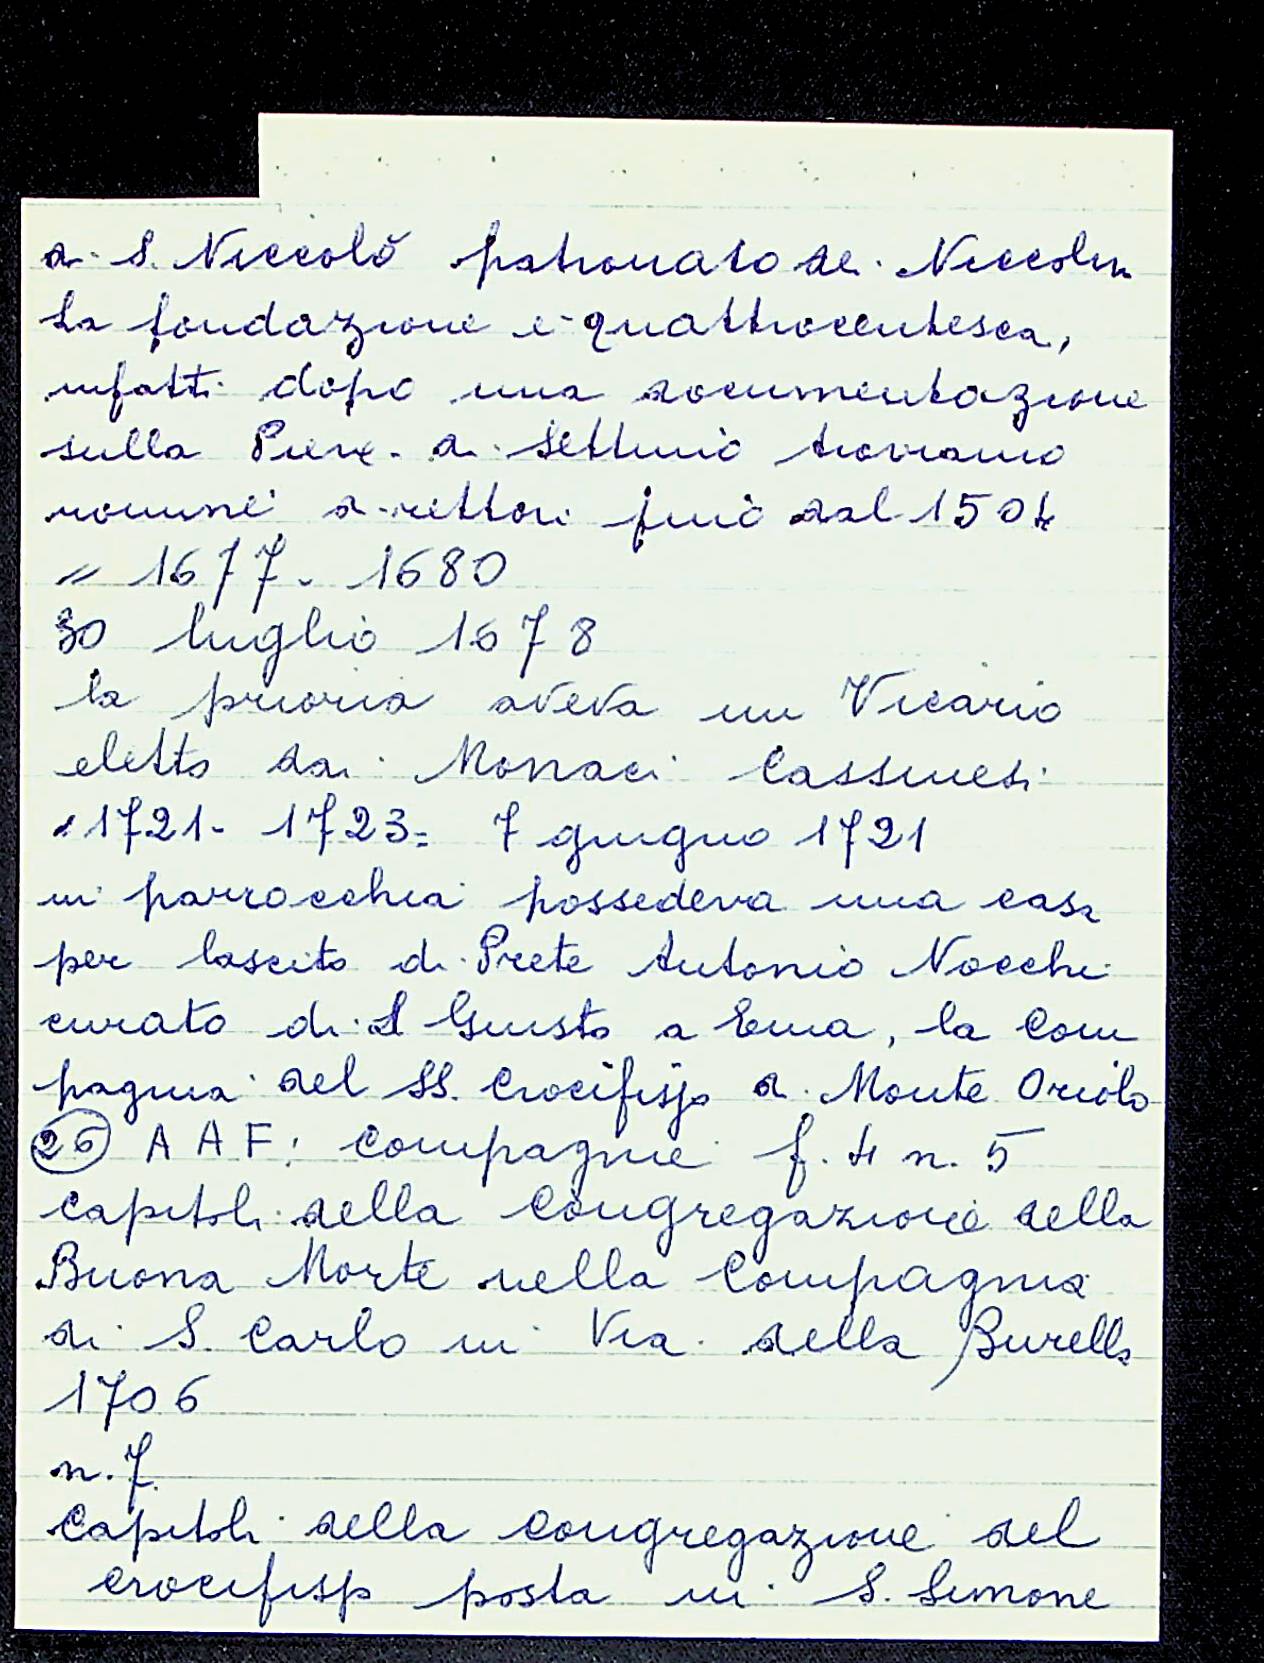 di S. Niccolò patronato dei Niccolin
La fondazione è quattrocentesca,
infatti dopo una documentazione
sulla Pieve di Settimo troviamo
di rettori fino dal 1504
" 1677 - 1680
30 luglio 1678
la prioria aveva un Vicario
eletto dai Monaci Cassinesi
" 1721 - 1723 = 7 giugno 1721
in parrocchia possedeva una casa
per lascito di Prete Antonio Nocchi
curato di S Giusto a Ema, la Com
pagnia del SS. Crocifisso di Monte Oriolo
26 A A F: Compagnie f. 4 n. 5
Capitoli della Congregazione della
Buona Morte nella Compagnia
di S. Carlo in Via della Burella
1706
n. 7
Capitoli della Congregazione del
Crocifisso posta in S. Simone